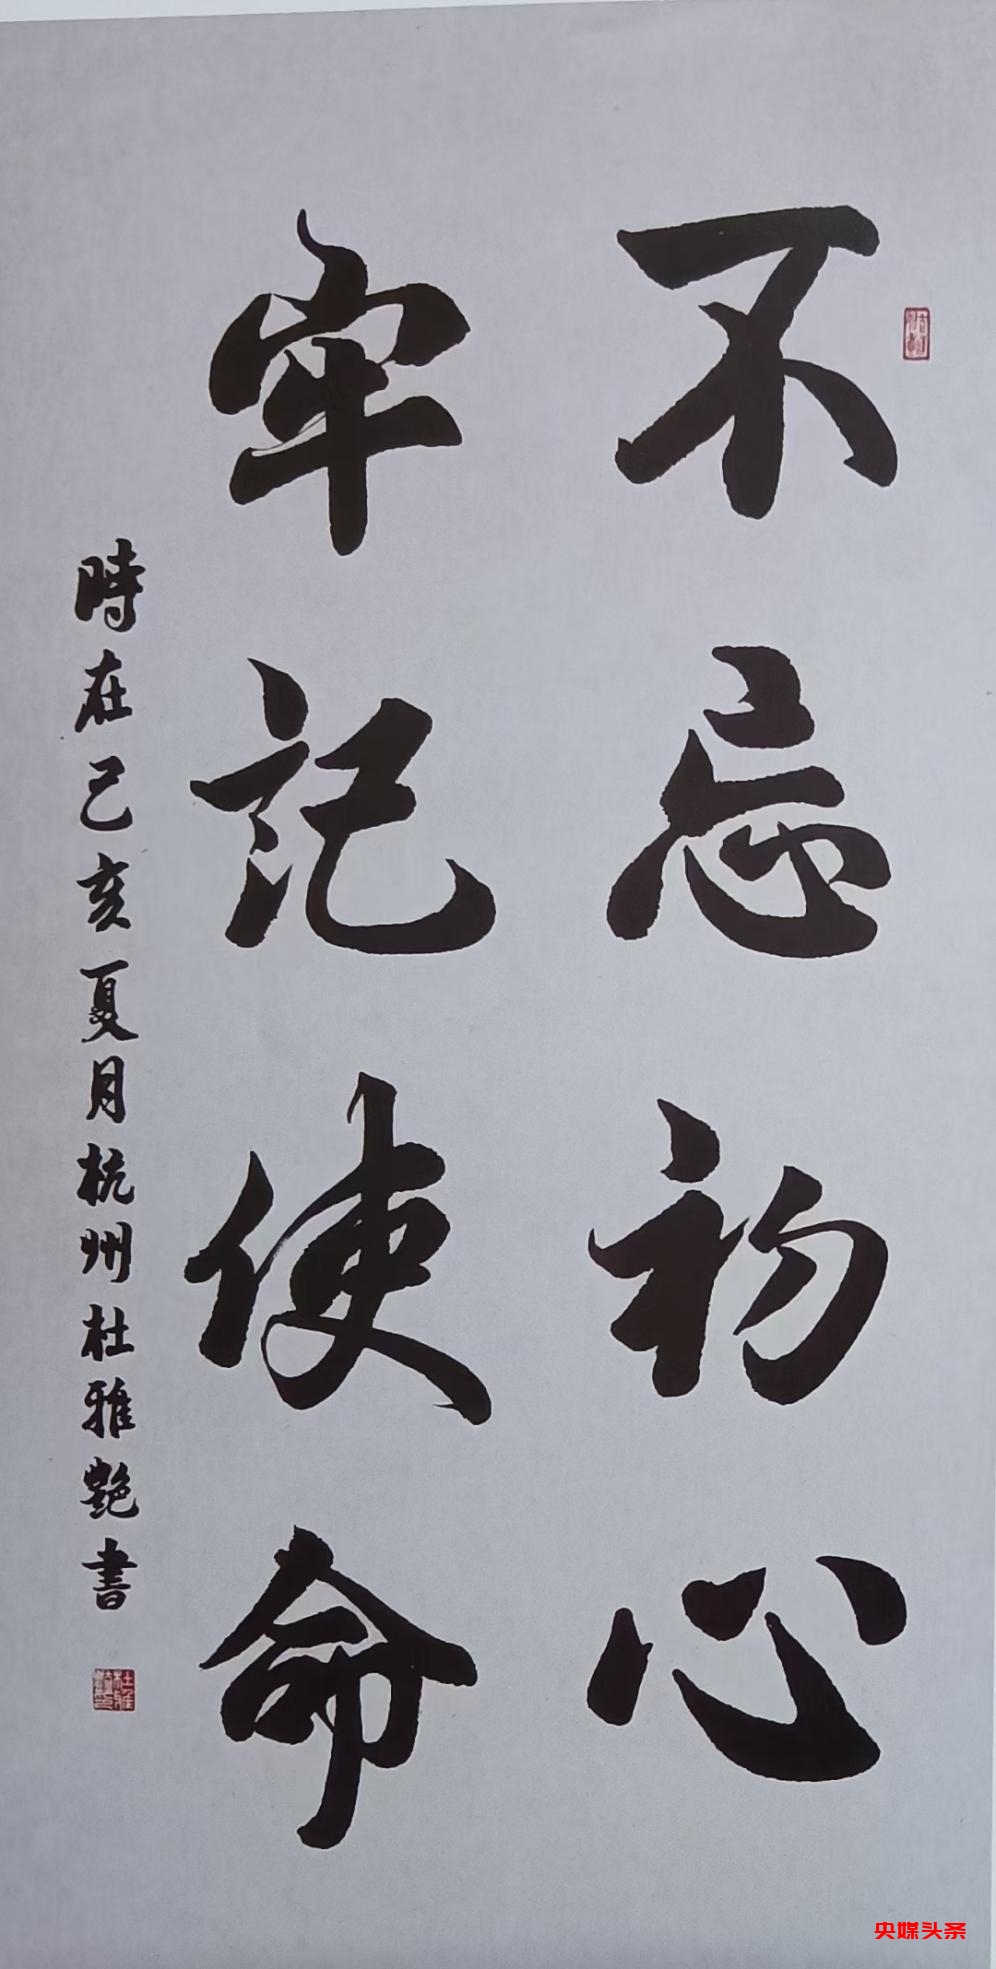 不忘初心
牢记使命
時在己亥夏月杭州杜雅艷書
央媒头条